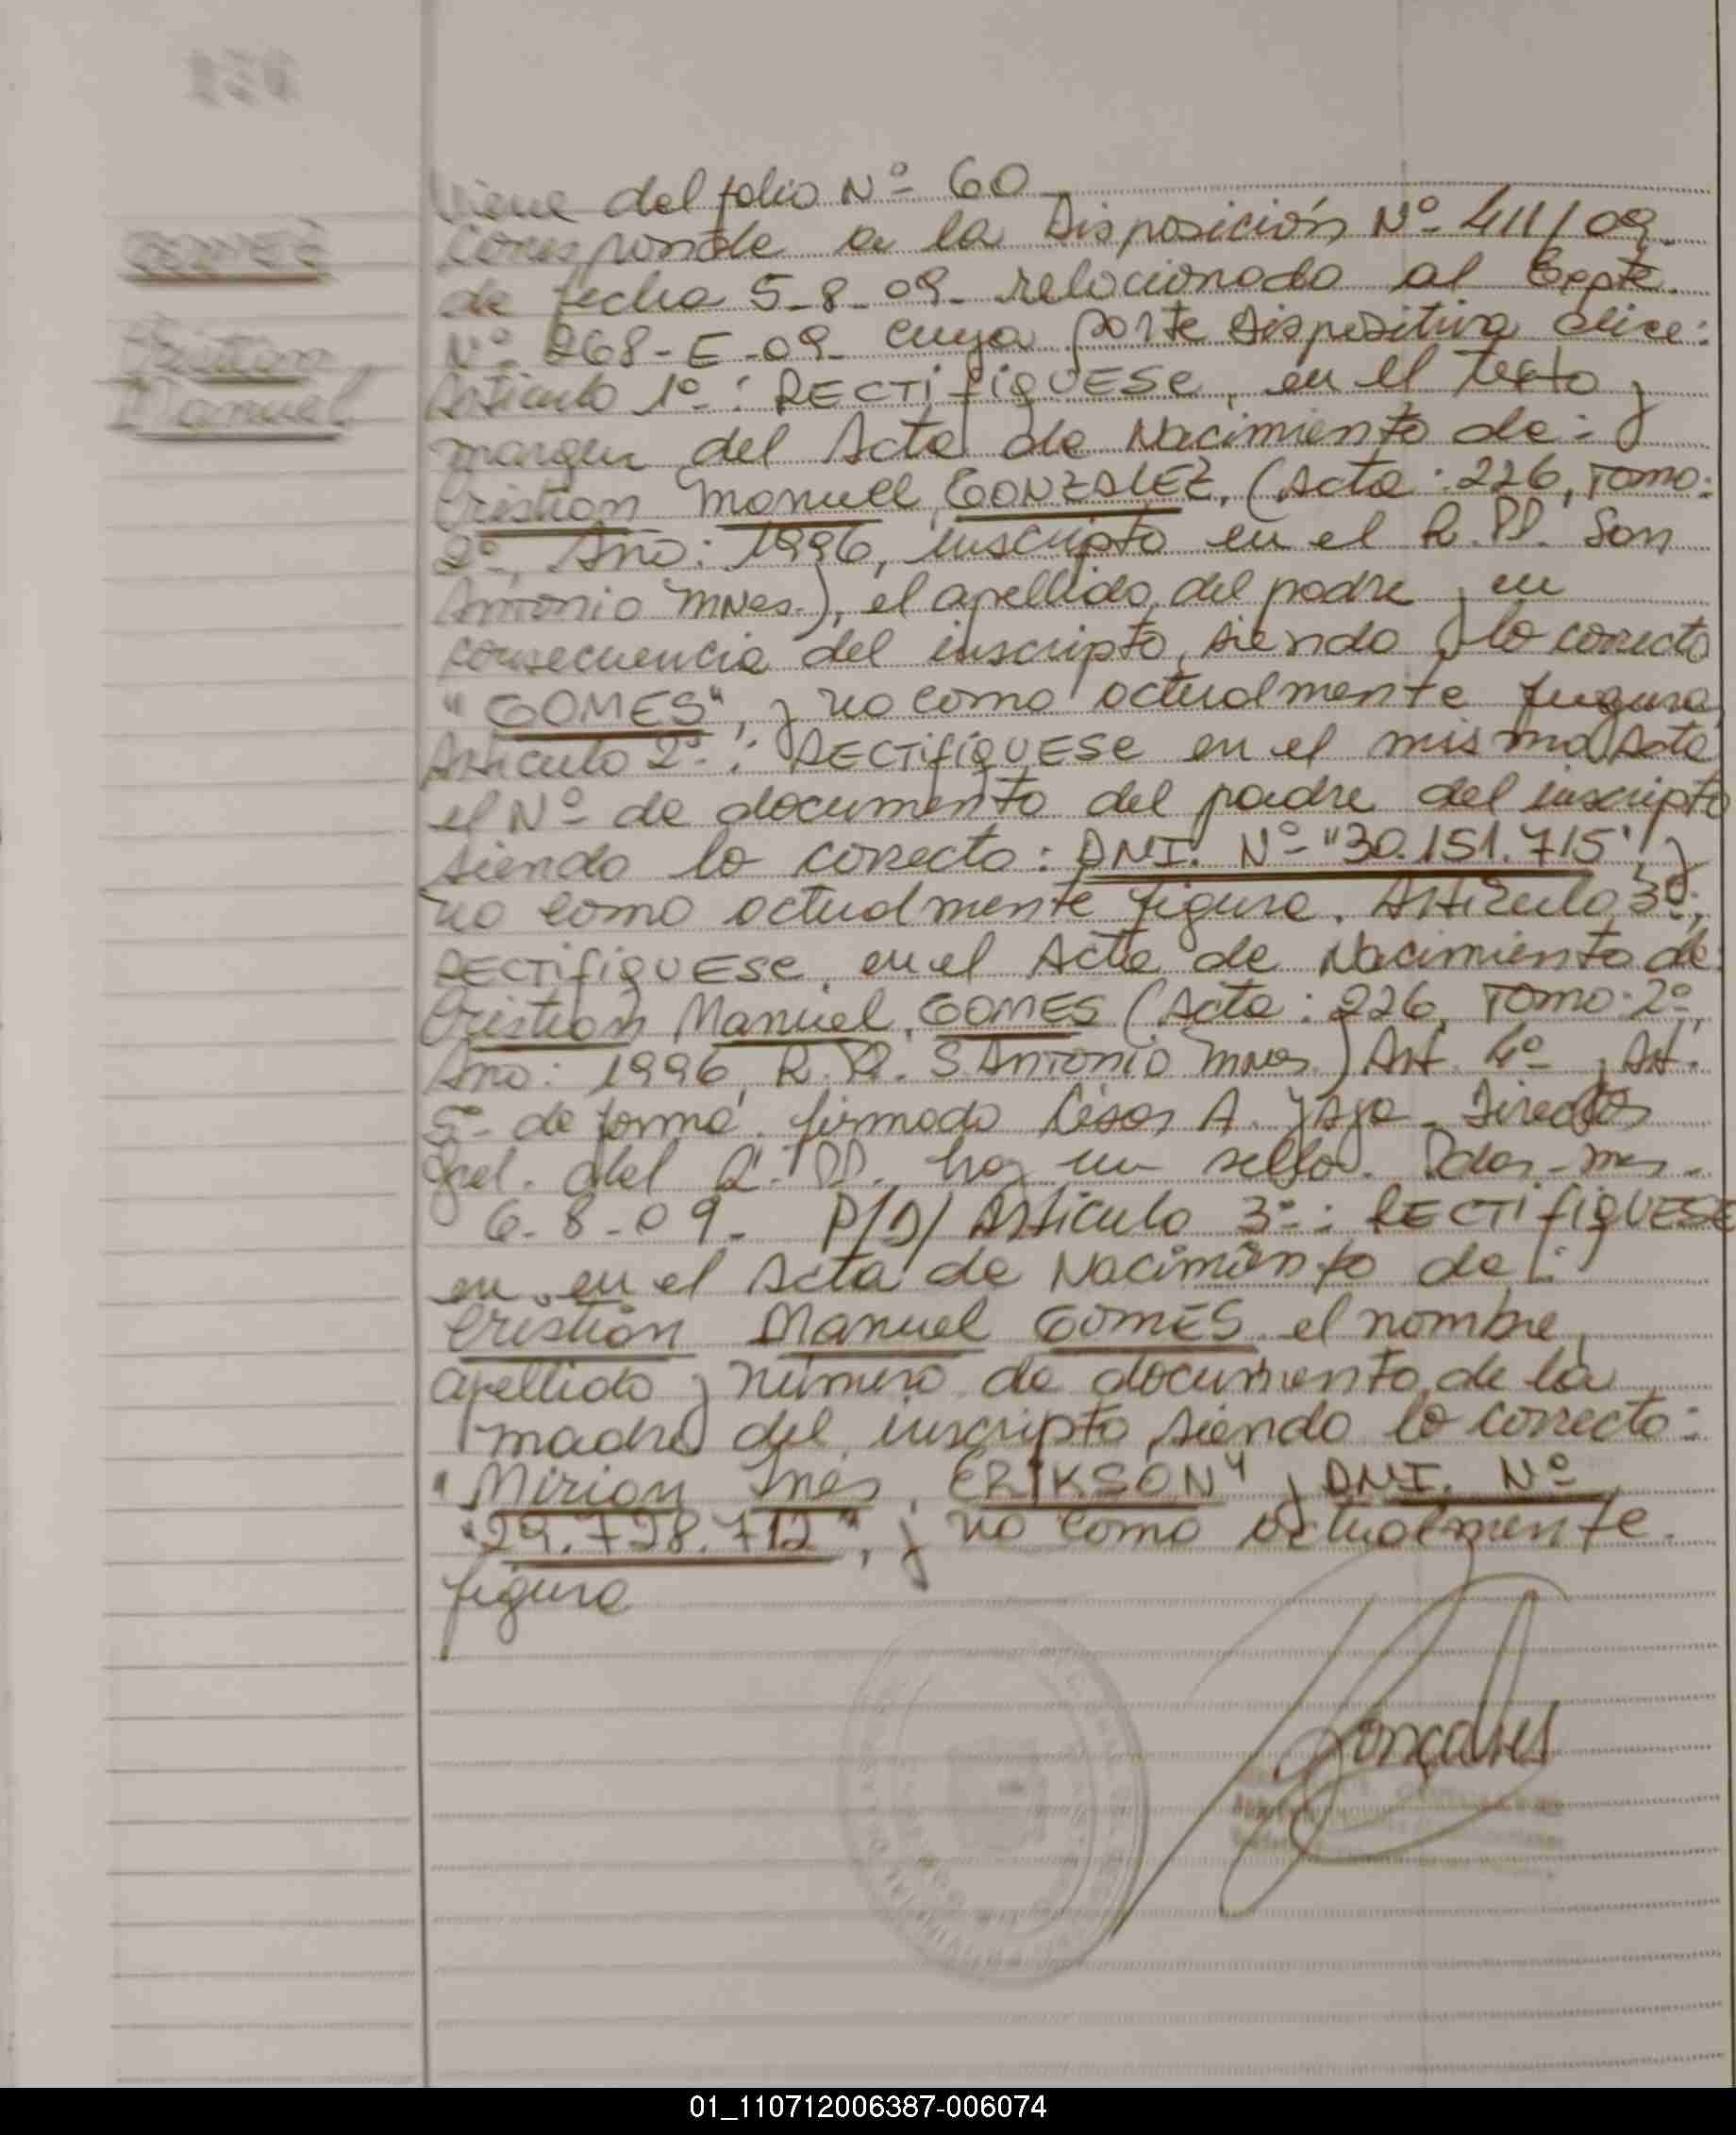 GOMES
Cristian
Manuel
Viene del folio Nº 60
corresponde a la Disposición Nº 411/09
de fecha 5-8-09- relacionado al Expte.
Nº 268-E-09- cuya parte dispositiva dice:
Artículo 1º: RECTIFIQUESE, en el texto y
margen del Acta de Nacimiento de:
Cristian Manuel, GONZALEZ, (Acta: 226, Tomo:
2º, Año: 1996, inscripto en el R.PP. San
Antonio Mnes.), el apellido del padre y en
consecuencia del inscripto, siendo lo correcto
"GOMES", y no como actualmente figura
Artículo 2º: RECTIFIQUESE en el misma Acta
el Nº de documento del padre del inscripto
siendo lo correcto: DNI. Nº "30.151.715", y
no como actualmente figura. Artículo 3º:
RECTIFIQUESE, en el Acta de Nacimiento de:
Cristian Manuel, GOMES (Acta: 226, Tomo: 2º,
Año: 1996, R.PP. S. Antonio Mnes.) Art. 4º y Art.
5º de forma. firmado César A. Director
Gral. del R.PP. hay un sello. Pdas-Mnes-
6-8-09- P/D/ Artículo 3º: RECTIFIQUESE
en en el Acta de Nacimiento de:
Cristian Manuel GOMES el nombre,
apellido y número de documento de la
madre del inscripto siendo lo correcto:
"Mirian Inés, ERIKSON" y DNI. Nº
"29.728.712", y no como actualmente
figura
Gonçalves
01_110712006387-006074